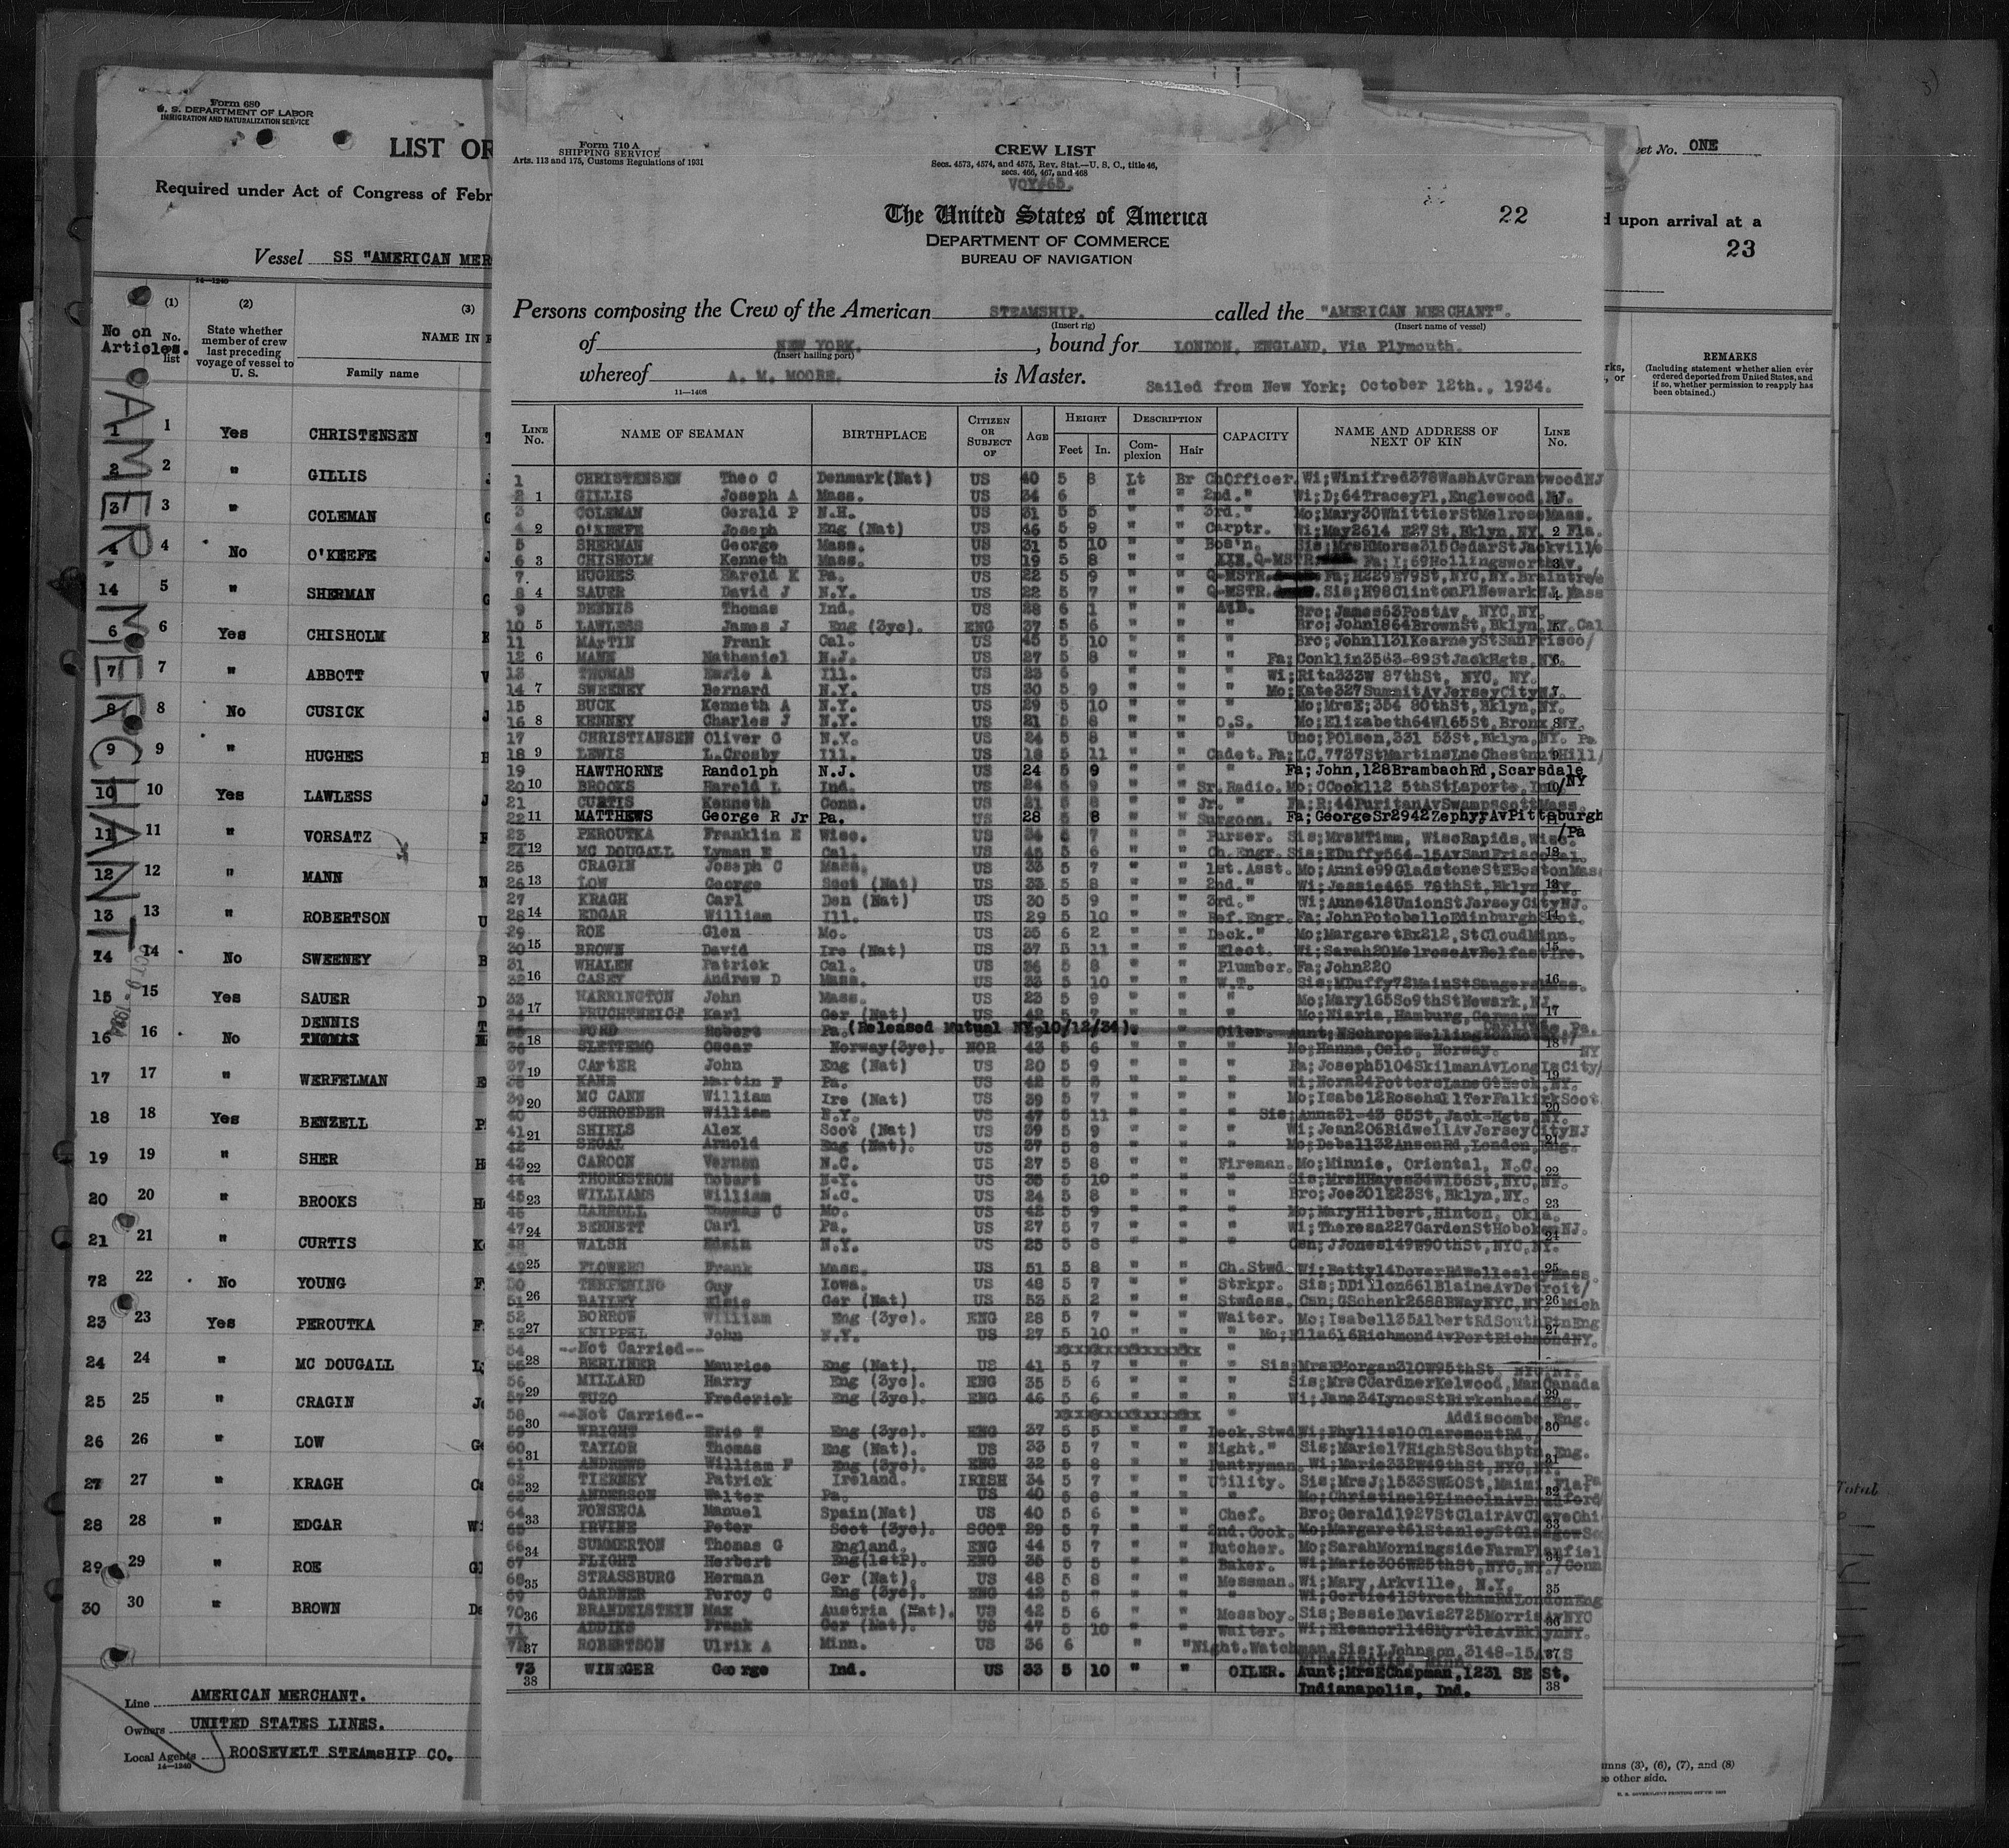 Form 680
U. S. DEPARTMENT OF LABOR
IMMIGRATION AND NATURALIZATION SERVICE
LIST OR
Required under Act of Congress of Febr
Vessel SS "AMERICAN MER
14—1240
No on Articles.
(1) No. list
(2) State whether member of crew last preceding voyage of vessel to U. S.
(3) NAME IN F
Family name
AMER. MERCHANT
1 1 Yes CHRISTENSEN
2 2 " GILLIS
3 3 " COLEMAN
4 4 No O'KEEFE
14 5 " SHERMAN
6 6 Yes CHISHOLM
7 7 " ABBOTT
8 8 No CUSICK
9 9 " HUGHES
10 10 Yes LAWLESS
11 11 " VORSATZ
12 12 " MANN
13 13 " ROBERTSON
14 14 No SWEENEY
15 15 Yes SAUER
DENNIS
16 16 No THOMAS
17 17 " WERFELMAN
18 18 Yes BENZELL
19 19 " SHER
20 20 " BROOKS
21 21 " CURTIS
72 22 No YOUNG
23 23 Yes PEROUTKA
24 24 " MC DOUGALL
25 25 " CRAGIN
26 26 " LOW
27 27 " KRAGH
28 28 " EDGAR
29 29 " ROE
30 30 " BROWN
Line AMERICAN MERCHANT.
Owners UNITED STATES LINES.
Local Agents ROOSEVELT STEAmsHIP CO.
14—1240
Form 710 A
SHIPPING SERVICE
Arts. 113 and 175, Customs Regulations of 1931
CREW LIST
Secs. 4573, 4574, and 4575, Rev. Stat.—U. S. C., title 46,
secs. 466, 467, and 468
VOY#65.
The United States of America
22
DEPARTMENT OF COMMERCE
BUREAU OF NAVIGATION
Persons composing the Crew of the American STEAMSHIP. called the "AMERICAN MERCHANT".
(Insert rig) (Insert name of vessel)
of NEW YORK. , bound for LONDON, ENGLAND, Via Plymouth.
(Insert hailing port)
whereof A. M. MOORE. is Master. Sailed from New York; October 12th., 1934.
11—1408
LINE No. NAME OF SEAMAN BIRTHPLACE CITIZEN OR SUBJECT OF AGE HEIGHT Feet In. DESCRIPTION Complexion Hair CAPACITY NAME AND ADDRESS OF NEXT OF KIN LINE No.
1 CHRISTENSEN Theo C Denmark(Nat) US 40 5 8 Lt Br ChOfficer. Wi;Winifred378WashAvGrantwoodNJ
2 GILLIS Joseph A Mass. US 34 6 " " 2nd." Wi;D;64TraceyPl,Englewood,NJ.
3 COLEMAN Gerald P N.H. US 31 5 5 " " 3rd." Mo;Mary30WhittierStMelroseMass.
4 O'KEEFE Joseph Eng (Nat) US 46 5 9 " " Carptr. Wi;May2614 E27St,Bklyn,NY.
5 SHERMAN George Mass. US 31 5 10 " " Bos'n. Sis;MrsHMorse315CedarStJackvill/ Fla.
6 CHISHOLM Kenneth Mass. US 19 5 8 " " Q-MSTR. Fa;I;69HollingsworthAv.
7 HUGHES Harold K Pa. US 22 5 9 " " Q-MSTR. Fa;H229E79St,NYC,NY. Braintre/
8 SAUER David J N.Y. US 22 5 7 " " Q-MSTR. Sis;H98ClintonPlNewarkNJ. Mass
9 DENNIS Thomas Ind. US 28 6 1 " " A.B. Bro;James63PostAv, NYC,NY.
10 LAWLESS James J Eng (3yc). ENG 37 5 6 " " " Bro;John1864BrownSt,Bklyn,NY. Cal
11 MArTIN Frank Cal. US 45 5 10 " " " Bro;John1131KearneyStSanFrisco/
12 MANN Nathaniel N.J. US 27 5 8 " " " Fa;Conklin3563-89StJackHgts,NY.
13 THOMAS Earle A Ill. US 23 6 " " " Wi;Rita333W 87thSt, NYC, NY.
14 SWEENEY Bernard N.Y. US 30 5 9 " " " Mo;Kate327SummitAvJerseyCityNJ.
15 BUCK Kenneth A N.Y. US 29 5 10 " " " Mo;MrsE;354 80thSt,Bklyn,NY.
16 KENNEY Charles J N.Y. US 21 5 8 " " O.S. Mo;Elizabeth64W165St,Bronx,NY.
17 CHRISTIANSEN Oliver G N.Y. US 24 5 8 " " " Unc;POlsen,331 53St,Bklyn,NY. Pa
18 LEWIS L.Crosby Ill. US 18 5 11 " " Cadet. Fa;LC,7737StMartinsLneChestnutHill/
19 HAWTHORNE Randolph N.J. US 24 5 9 " " " Fa;John,128BrambachRd,Scarsdale /NY
20 BROOKS Harold L Ind. US 24 5 9 " " Sr.Radio. Mo;CCook112 5thStLaporte,Ind
21 CURTIS Kenneth Conn. US 21 5 8 " " Jr. " Fa;R;44PuritanAvSwampscottMass.
22 MATTHEWS George R Jr Pa. US 28 5 8 " " Surgeon. Fa;GeorgeSr2942ZephyyAvPittsburgh /Pa
23 PEROUTKA Franklin E Wisc. US 34 5 7 " " Purser. Sis;MrsMTimm, WiscRapids,Wisc.
24 MC DOUGALL Lyman E Cal. US 45 5 6 " " Ch.Engr. Sis;EDuffy564-15AvSanFriscoCal.
25 CRAGIN Joseph C Mass. US 33 5 7 " " 1st.Asst. Mo;Annie99GladstoneStEBostonMass
26 LOW George Scot (Nat) US 33 5 8 " " 2nd." Wi;Jessie465 78thSt,Bklyn,NY.
27 KRAGH Carl Den (Nat) US 30 5 9 " " 3rd." Wi;Anne418UnionStJerseyCityNJ.
28 EDGAR William Ill. US 29 5 10 " " Ref.Engr. Fa;JohnPotobelloEdinburghScot.
29 ROE Glen Mo. US 35 6 2 " " Deck." Mo;MargaretBx212,StCloudMinn.
30 BROWN David Ire (Nat) US 37 5 11 " " Elect. Wi;Sarah20MelroseAvBelfastIre.
31 WHALEN Patrick Cal. US 36 5 8 " " Plumber. Fa;John220
32 CASEY Andrew D Mass. US 33 5 10 " " W.T. Sis;MDuffy72MainStSaugersMass.
33 HARRINGTON John Mass. US 23 5 9 " " " Mo;Mary165So9thStNewark,NJ.
34 FRUCHTNICHT Karl Ger (Nat) US 42 5 7 " " " Mo;Maria, Hamburg,Germany
35 FORD Robert Pa.(Released Mutual NY 10/12/34). " Oiler.
36 SLETTEMO Oscar Norway(3yc). NOR 43 5 6 " " " Mo;Hanna,Oslo, Norway. NY
37 CArTER John Eng (Nat) US 20 5 9 " " " Fa;Joseph5104SkilmanAvLongIsCity/
38 KANE Martin F Pa. US 42 5 8 " " " Wi;Nora24PottersLaneGtNeck,NY.
39 MC CANN William Ire (Nat) US 39 5 7 " " " Mo;Isabel2RosehallTerFalkirkScot
40 SCHROEDER William N.Y. US 47 5 11 " " " Sis;Anna31-43 85St,Jack-Hgts,NY.
41 SHIELS Alex Scot (Nat) US 39 5 9 " " " Wi;Jean206BidwellAvJerseyCityNJ
42 SEGAL Arnold Eng (Nat). US 37 5 8 " " " Mo;Deball32AnsonRd,London,Eng.
43 CAROON Vernan N.C. US 27 5 8 " " Fireman. Mo;Minnie, Oriental, N.C.
44 THORNSTROM Robert N.Y. US 35 5 10 " " " Sis;MrsHHayes34W156St,NYC,NY.
45 WILLIAMS William N.C. US 24 5 8 " " " Bro;Joe301E23St, Bklyn,NY.
46 CARROLL Thomas C Mo. US 42 5 9 " " " Mo;MaryHilbert,Hinton, Okla.
47 BENNETT Carl Pa. US 27 5 7 " " " Wi;Theresa227GardenStHobokenNJ.
48 WALSH Edwin N.Y. US 25 5 8 " " " Csn;JJones149W90thSt,NYC,NY.
49 FLOWERS Frank Mass. US 51 5 8 " " Ch.Stwd. Wi;Betty14DoverRdWellesleyMass.
50 TERPENING Guy Iowa. US 48 5 7 " " Strkpr. Sis;DDillon661BlaineAvDetroit/
51 BAILEY Elsie Ger (Nat) US 53 5 2 " " Stwdess. Csn;GSchenk2688BWayNYC,NY. Mich
52 BORROW William Eng (3yc). ENG 28 5 7 " " Waiter. Mo;Isabel135AlbertRdSouthPtnEng
53 KNIPPEL John N.Y. US 27 5 10 " " " Mo;Ella616RichmondAvPortRichmondNY.
54 --Not Carried-- xxxxxxxxxxxxx "
55 BERLINER Maurice Eng (Nat). US 41 5 7 " " " Sis;MrsEMorgan310W95thSt, NYC,NY.
56 MILLARD Harry Eng (3yc). ENG 35 5 6 " " " Sis;MrsCGardnerKelwood,ManCanada
57 TUZO Frederick Eng (3yc). ENG 46 5 6 " " " Wi;Jane34LynesStBirkenheadEng.
58 --Not Carried-- xxxxxxxxxxxxx " Addiscombe,Eng.
59 WRIGHT Eric T Eng (3yc). ENG 37 5 5 " " Deck.Stwd Wi;Phyllis10ClaremontRd.,
60 TAYLOR Thomas Eng (Nat). US 33 5 7 " " Night." Sis;Marie17HighStSouthptn,Eng.
61 ANDREWS William F Eng (3yc). ENG 32 5 8 " " Pantryman. Wi;Marie332W49thSt,NYC,NY.
62 TIERNEY Patrick Ireland. IRISH 34 5 7 " " Utility. Sis;MrsJ;1533SW20St,Maimi,Fla Pa
63 ANDERSON Walter Pa. US 40 5 8 " " " Mo;Christine19LincolnAvBradford/
64 FONSECA Manuel Spain(Nat) US 40 5 6 " " Chef. Bro;Gerald1927StClairAvCleveOhi
65 IRVINE Peter Scot (3yc). SCOT 29 5 7 " " 2nd.Cook. Mo;Margaret61StanleyStGlasgowSc
66 SUMMERTON Thomas G England. ENG 44 5 7 " " Butcher. Mo;SarahMorningsideFarmPlanfiel
67 FLIGHT Herbert Eng(1stP). ENG 35 5 5 " " Baker. Wi;Marie306W25thSt,NYC,NY./Conn
68 STRASSBURG Herman Ger (Nat). US 48 5 8 " " Messman. Wi;Mary,Arkville, N.Y.
69 GARDNER Percy C Eng (3yc). ENG 42 5 7 " " " Wi;Gertie41StreathamRdLondonEng
70 BRANDELSTEIN Max Austria (Nat). US 42 5 6 " " Messboy. Sis;BessieDavis2725MorrisAvNYC
71 ADDIKS Frank Ger (Nat). US 47 5 10 " " Waiter. Wi;Eleanor1148MyrtleAvBklynNY.
72 ROBERTSON Ulrik A Minn. US 36 6 " " Night.Watchman. Sis;LJohnson,3148-15AvS
Minneapolis, Minn.
73 WINEGER George Ind. US 33 5 10 " " OILER. Aunt;MrsEChapman,1231 SE St.
Indianapolis, Ind.
eet No. ONE
d upon arrival at a
23
REMARKS
(Including statement whether alien ever ordered deported from United States, and if so, whether permission to reapply has been obtained.)
Total
umns (3), (6), (7), and (8)
e other side.
U. S. GOVERNMENT PRINTING OFFICE